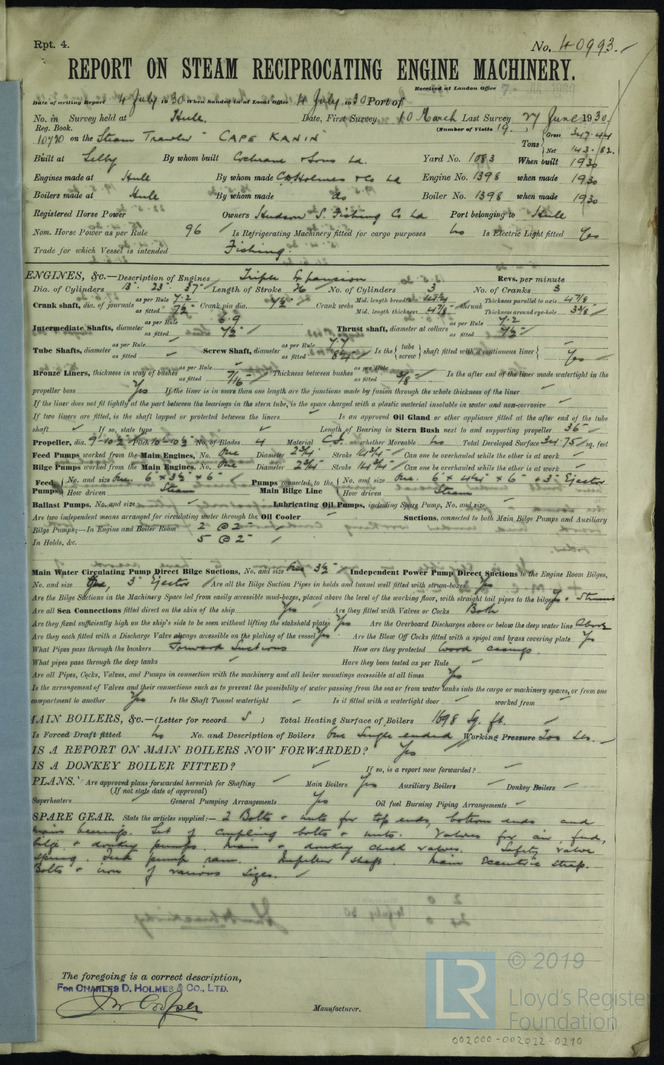 Rpt. 4.
No. 40993.
REPORT ON STEAM RECIPROCATING ENGINE MACHINERY.
Received at London Office
Date of writing Report 4 July 1930 When handed in at Local Office 4 July 1930 Port of
No. in Survey held at Hull. Date, First Survey 10 March Last Survey 27 June 1930
Reg. Book. (Number of Visits 19)
10770 on the Steam Trawler "CAPE KANIN" Tons Gross 347.44 Net 143.82
Built at Selby By whom built Cochrane & Sons Ld. Yard No. 1083 When built 1930
Engines made at Hull By whom made C D Holmes & Co Ld Engine No. 1398 when made 1930
Boilers made at Hull By whom made do Boiler No. 1398 when made 1930
Registered Horse Power Owners Hudson S. Fishing Co Ld Port belonging to Hull
Nom. Horse Power as per Rule 96 Is Refrigerating Machinery fitted for cargo purposes No Is Electric Light fitted Yes
Trade for which Vessel is intended Fishing.
ENGINES, &c.—Description of Engines Triple Expansion Revs. per minute
Dia. of Cylinders 13" 23" 37" Length of Stroke 26 No. of Cylinders 3 No. of Cranks 3
Crank shaft, dia. of journals as per Rule 7.2 as fitted 7½" Crank pin dia. 7½" Crank webs Mid. length breadth Mid. length thickness 4⅞" shrunk Thickness parallel to axis 4⅞" Thickness around eye-hole
Intermediate Shafts, diameter as per Rule 6.9 as fitted 7½" Thrust shaft, diameter at collars as per Rule 7.2 as fitted 7½"
Tube Shafts, diameter as per Rule as fitted Screw Shaft, diameter as per Rule 7.7 as fitted Is the tube screw shaft fitted with a continuous liner Yes
Bronze Liners, thickness in way of bushes as per Rule as fitted Thickness between bushes as per Rule as fitted Is the after end of the liner made watertight in the
propeller boss Yes If the liner is in more than one length are the junctions made by fusion through the whole thickness of the liner
If the liner does not fit tightly at the part between the bearings in the stern tube, is the space charged with a plastic material insoluble in water and non-corrosive
If two liners are fitted, is the shaft lapped or protected between the liners Is an approved Oil Gland or other appliance fitted at the after end of the tube
shaft If so, state type Length of Bearing in Stern Bush next to and supporting propeller 36"
Propeller, dia. 9'-10½" Pitch 10'-10½" No. of Blades 4 Material C.I. whether Moveable No Total Developed Surface 34.75 sq. feet
Feed Pumps worked from the Main Engines, No. One Diameter 2¾" Stroke 14¾" Can one be overhauled while the other is at work
Bilge Pumps worked from the Main Engines, No. One Diameter 2¾" Stroke 14¾" Can one be overhauled while the other is at work
Feed Pumps No. and size One. 6" x 3½" x 6" How driven Steam Pumps connected to the Main Bilge Line No. and size One. 6" x 4¼" x 6" + 3" Ejector How driven Steam
Ballast Pumps, No. and size Lubricating Oil Pumps, including Spare Pump, No. and size
Are two independent means arranged for circulating water through the Oil Cooler Suctions, connected to both Main Bilge Pumps and Auxiliary
Bilge Pumps;—In Engine and Boiler Room 2 @ 2"
In Holds, &c. 5 @ 2"
Main Water Circulating Pump Direct Bilge Suctions, No. and size One 3½" Independent Power Pump Direct Suctions to the Engine Room Bilges,
No. and size One, 3" Ejector Are all the Bilge Suction Pipes in holds and tunnel well fitted with strum-boxes Yes
Are the Bilge Suctions in the Machinery Space led from easily accessible mud-boxes, placed above the level of the working floor, with straight tail pipes to the bilges Yes + Strums
Are all Sea Connections fitted direct on the skin of the ship Yes Are they fitted with Valves or Cocks Both
Are they fixed sufficiently high on the ship's side to be seen without lifting the stokehold plates Yes Are the Overboard Discharges above or below the deep water line Above
Are they each fitted with a Discharge Valve always accessible on the plating of the vessel Yes Are the Blow Off Cocks fitted with a spigot and brass covering plate Yes
What Pipes pass through the bunkers Forward Suctions How are they protected Wood casings.
What pipes pass through the deep tanks Have they been tested as per Rule
Are all Pipes, Cocks, Valves, and Pumps in connection with the machinery and all boiler mountings accessible at all times Yes
Is the arrangement of Valves and their connections such as to prevent the possibility of water passing from the sea or from water tanks into the cargo or machinery spaces, or from one
compartment to another Yes Is the Shaft Tunnel watertight Is it fitted with a watertight door worked from
MAIN BOILERS, &c.—(Letter for record S) Total Heating Surface of Boilers 1698 Sq. ft.
Is Forced Draft fitted No No. and Description of Boilers One Single ended Working Pressure 200 Lbs.
IS A REPORT ON MAIN BOILERS NOW FORWARDED? Yes
IS A DONKEY BOILER FITTED? If so, is a report now forwarded?
PLANS. Are approved plans forwarded herewith for Shafting Main Boilers Yes Auxiliary Boilers Donkey Boilers
(If not state date of approval)
Superheaters General Pumping Arrangements Yes Oil fuel Burning Piping Arrangements
SPARE GEAR. State the articles supplied:— 2 Bolts & nuts for top ends, bottom ends and
main bearings. Set of coupling bolts & nuts. Valves for air, feed,
bilge & donkey pumps. Main & donkey check valves. Safety valve
spring. Feed pump ram. Propeller shaft. Main Eccentric strap.
Bolts & iron of various sizes.
The foregoing is a correct description,
FOR CHARLES D. HOLMES & CO., LTD.
Manufacturer.
LR
© 2019
Lloyd's Register
Foundation
002000-002022-0210